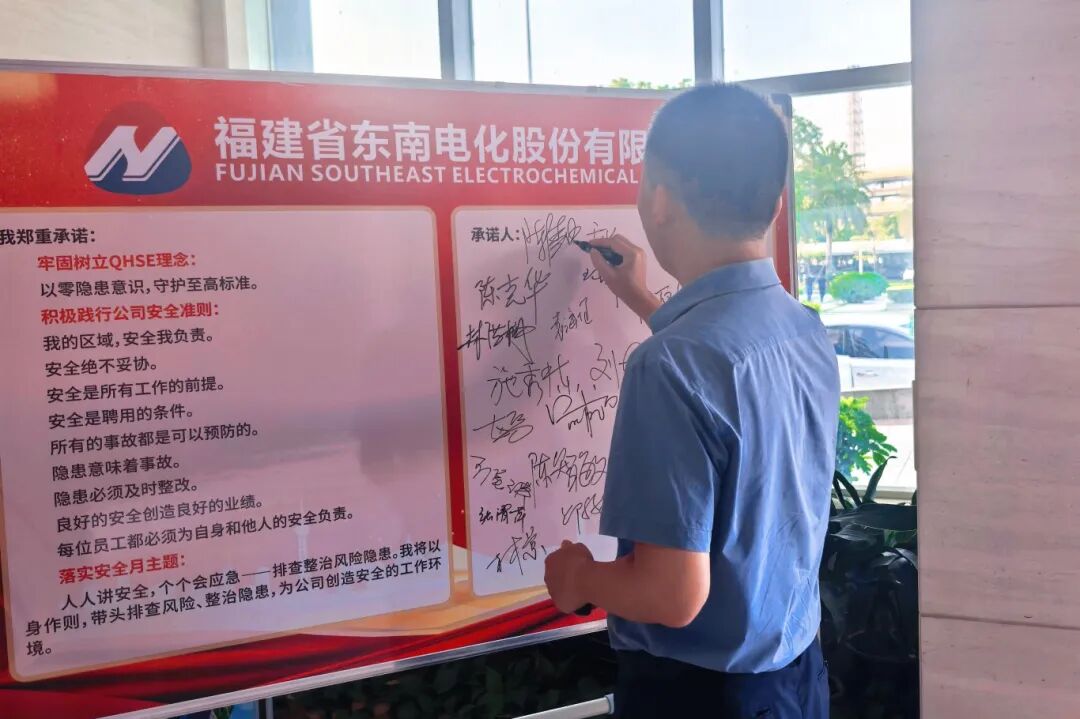 福建省东南电化股份有限
FUJIAN SOUTHEAST ELECTROCHEMICAL
我郑重承诺：
牢固树立QHSE理念：
以零隐患意识，守护至高标准。
积极践行公司安全准则：
我的区域，安全我负责。
安全绝不妥协。
安全是所有工作的前提。
安全是聘用的条件。
所有的事故都是可以预防的。
隐患意味着事故。
隐患必须及时整改。
良好的安全创造良好的业绩。
每位员工都必须为自身和他人的安全负责。
落实安全月主题：
人人讲安全，个个会应急——排查整治风险隐患。我将以
身作则，带头排查风险、整治隐患，为公司创造安全的工作环
境。
承诺人：
陈克华
陈智敏